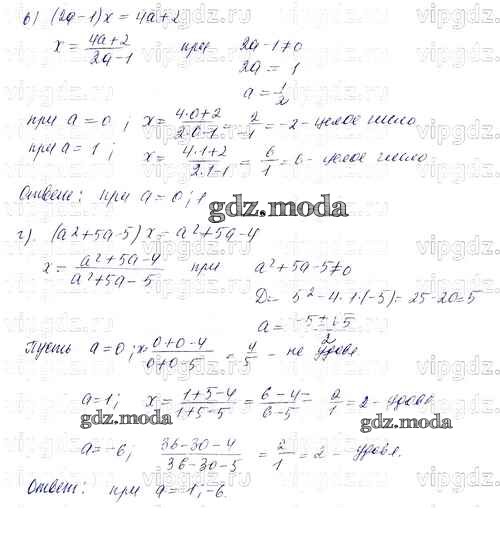 в) (2a-1)x = 4a+2
x = \frac{4a+2}{2a-1} при 2a-1≠0
2a = 1
a = \frac{1}{2}
при a=0; x = \frac{4·0+2}{2·0-1} = \frac{2}{-1} = -2 - целое число
при a=1; x = \frac{4·1+2}{2·1-1} = \frac{6}{1} = 6 - целое число
Ответ: при a=0;1
gdz.moda
г). (a2+5a-5)x = a²+5a-4
x = \frac{a²+5a-4}{a²+5a-5} при a²+5a-5≠0
D = 5²-4·1·(-5) = 25-20=5
a = \frac{-5±√5}{2}
Пусть a=0; x = \frac{0+0-4}{0+0-5} = \frac{4}{5} - не удовл
a=1; x = \frac{1+5-4}{1+5-5} = \frac{6-4}{6-5} = \frac{2}{1} = 2 - удовл.
gdz.moda
gdz.moda
a=-6; \frac{36-30-4}{36-30-5} = \frac{2}{1} = 2 - удовл.
Ответ: при a=1;-6.